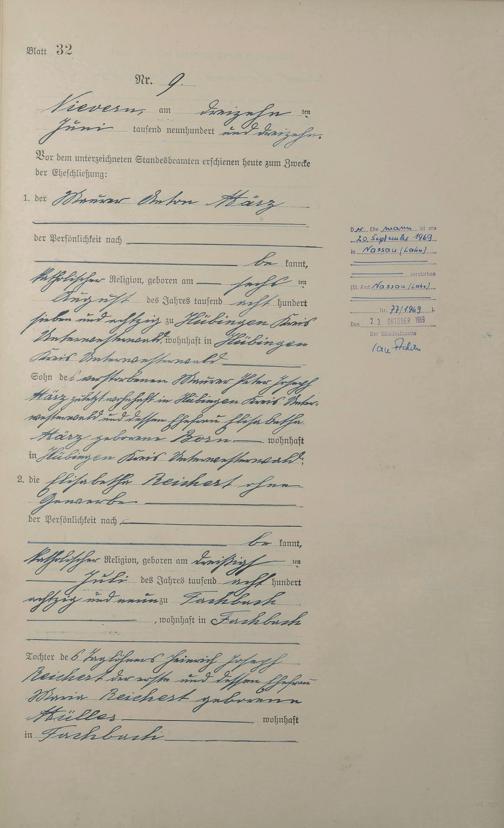 Blatt 32
Nr. 9
Nievern, am dreizehn ten
Juni tausend neunhundert und dreizehn.
Vor dem unterzeichneten Standesbeamten erschienen heute zum Zwecke
der Eheschließung:
1. der Maurer Anton März
der Persönlichkeit nach
be kannt,
katholischer Religion, geboren am sechs ten
August des Jahres tausend acht hundert
sieben und achtzig zu Hübingen Kreis
Unterwesterwald, wohnhaft in Hübingen
Kreis Unterwesterwald
Sohn des verstorbenen Maurer Peter Joseph
März zuletzt wohnhaft in Hübingen Kreis Unter-
westerwald und dessen Ehefrau Elisabetha
März geborene Born wohnhaft
in Hübingen Kreis Unterwesterwald.
2. die Elisabetha Reichert ohne
Gewerbe
der Persönlichkeit nach
be kannt,
katholischer Religion, geboren am dreißigs ten
Juli des Jahres tausend acht hundert
achtzig und neun zu Fachbach
, wohnhaft in Fachbach
Tochter des Taglöhners Heinrich Joseph
Reichert der erste und dessen Ehefrau
Maria Reichert geborene
Müller wohnhaft
in Fachbach
Der Ehemann ist am
20. September 1969
in Nassau (Lahn)
verstorben
Nassau (Lahn)
Nr. 77/1969
Den OKTOBER 1969
Der Standesbeamte